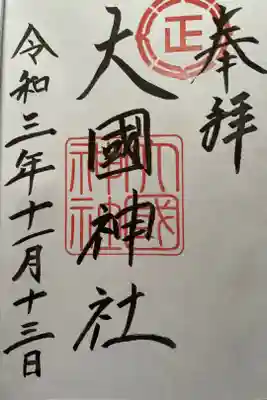 奉拝
大國神社
令和三年十一月十三日
正
大國神社